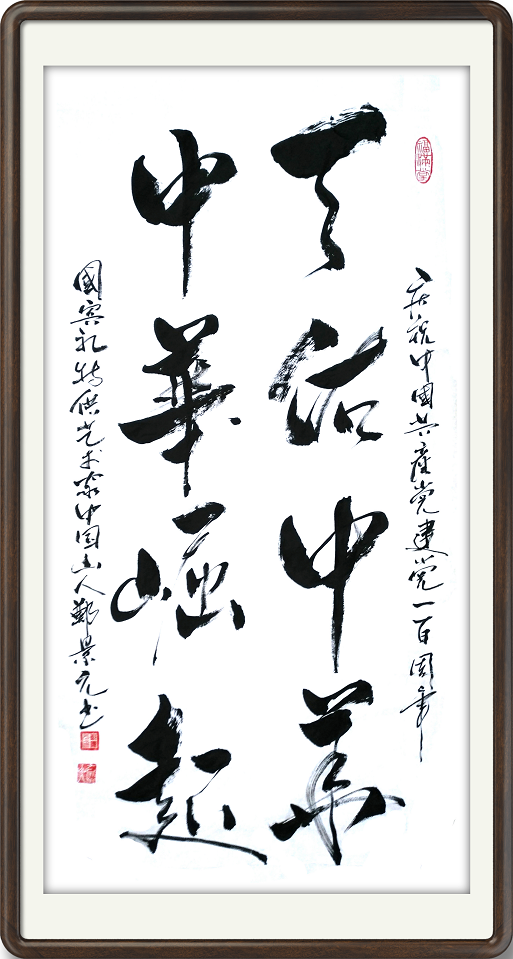 庆祝中国共产党建党一百周年
天佑中华
中華崛起
國宾礼特供艺术家中国山人鄭景元书